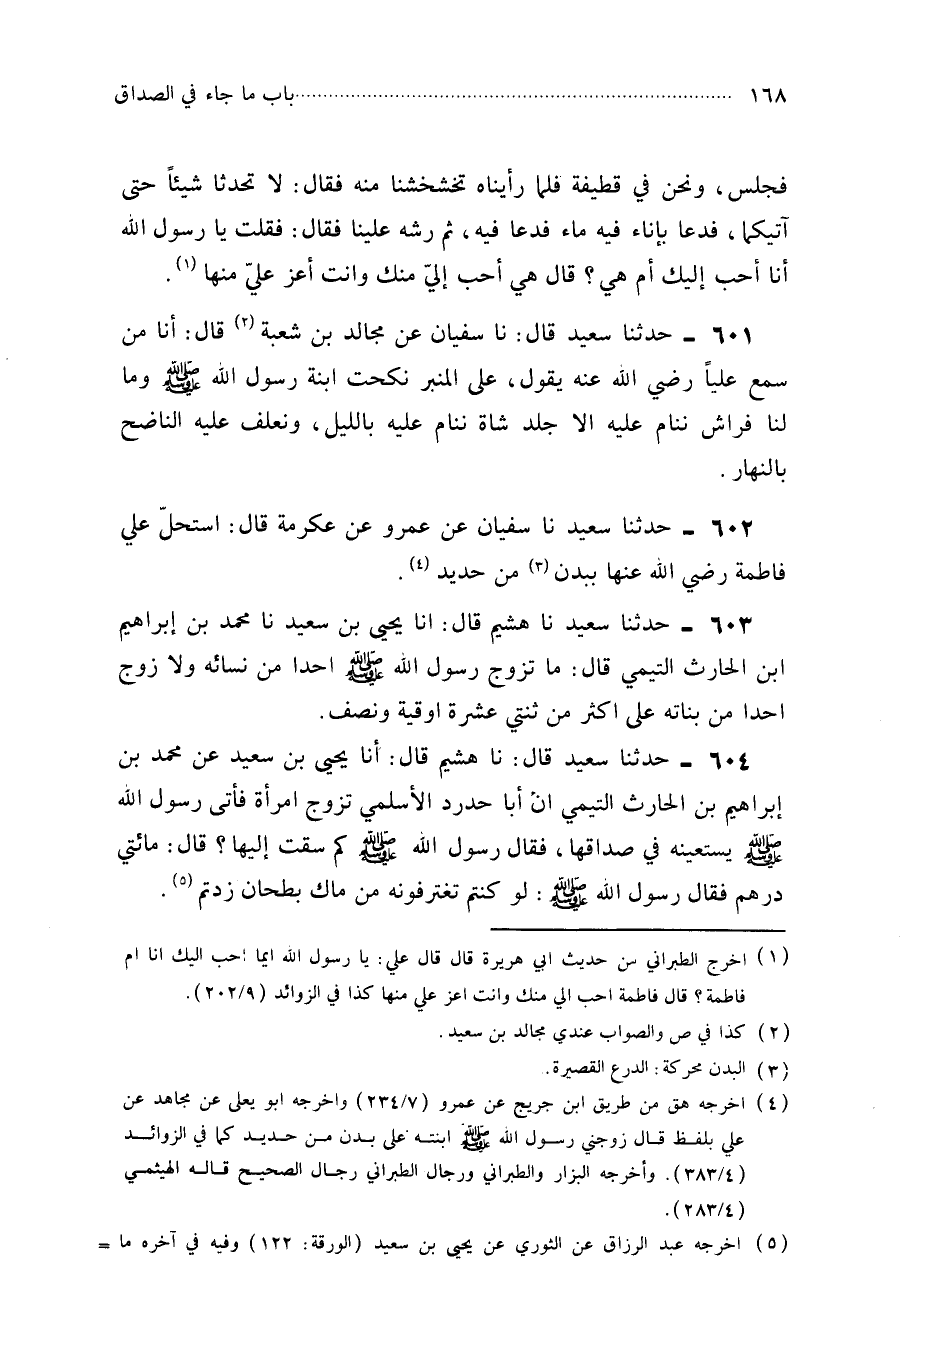 ١٦٨ ................................ باب ما جاء في الصداق
فجلس، ونحن في قطيفة فلما رأيناه تخشخشنا منه فقال: لا تحدثا شيئاً حتى
آتيكما، فدعا بإناء فيه ماء فدعا فيه، ثم رشه علينا فقال: فقلت يا رسول الله
أنا أحب إليك أم هي؟ قال هي أحب إليّ منك وانت أعز عليّ منها (١).
٦٠١ ـ حدثنا سعيد قال: نا سفيان عن مجالد بن شعبة (٢) قال: أنا من
سمع علياً رضي الله عنه يقول، على المنبر نكحت ابنة رسول الله ﷺ وما
لنا فراش ننام عليه الا جلد شاة ننام عليه بالليل، ونعلف عليه الناضح
بالنهار.
٦٠٢ ـ حدثنا سعيد نا سفيان عن عمرو عن عكرمة قال: استحلّ علي
فاطمة رضي الله عنها ببدن (٣) من حديد (٤).
٦٠٣ ـ حدثنا سعيد نا هشيم قال: انا يحيى بن سعيد نا محمد بن إبراهيم
ابن الحارث التيمي قال: ما تزوج رسول الله ﷺ احدا من نسائه ولا زوج
احدا من بناته على اكثر من ثنتي عشرة اوقية ونصف.
٦٠٤ ـ حدثنا سعيد قال: نا هشيم قال: أنا يحيى بن سعيد عن محمد بن
إبراهيم بن الحارث التيمي انّ أبا حدرد الأسلمي تزوج امرأة فأتى رسول الله
ﷺ يستعينه في صداقها، فقال رسول الله ﷺ كم سقت إليها؟ قال: مائتي
درهم فقال رسول الله ﷺ: لو كنتم تغترفونه من ماك بطحان زدتم (٥).
(١) اخرج الطبراني من حديث ابي هريرة قال قال علي: يا رسول الله ايما احب اليك انا ام
فاطمة؟ قال فاطمة احب الي منك وانت اعز علي منها كذا في الزوائد (٢٠٢/٩).
(٢) كذا في ص والصواب عندي مجالد بن سعيد.
(٣) البدن محركة: الدرع القصيرة.
(٤) اخرجه هق من طريق ابن جريج عن عمرو (٢٣٤/٧) واخرجه ابو يعلى عن مجاهد عن
علي بلفظ قال زوجني رسول الله ﷺ ابنته على بدن من حديد كما في الزوائد
(٣٨٣/٤). وأخرجه البزار والطبراني ورجال الطبراني رجال الصحيح قاله الهيثمي
(٢٨٣/٤).
(٥) اخرجه عبد الرزاق عن الثوري عن يحيى بن سعيد (الورقة: ١٢٢) وفيه في آخره ما =